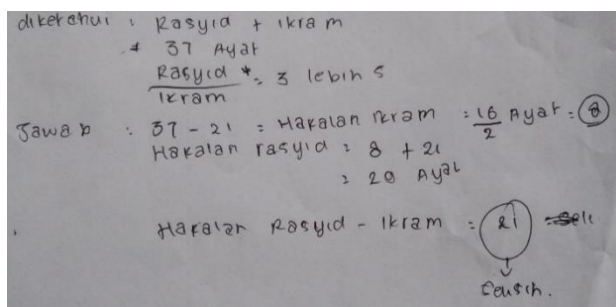 diketahui : Rasyid + Ikram
* 37 Ayat
Rasyid * = 3 lebih 5
Ikram
Jawab : 37 - 21 = Hafalan Ikram = 16/2 Ayat = 8
Hafalan rasyid = 8 + 21
= 29 Ayat
Hafalan Rasyid - Ikram = 21